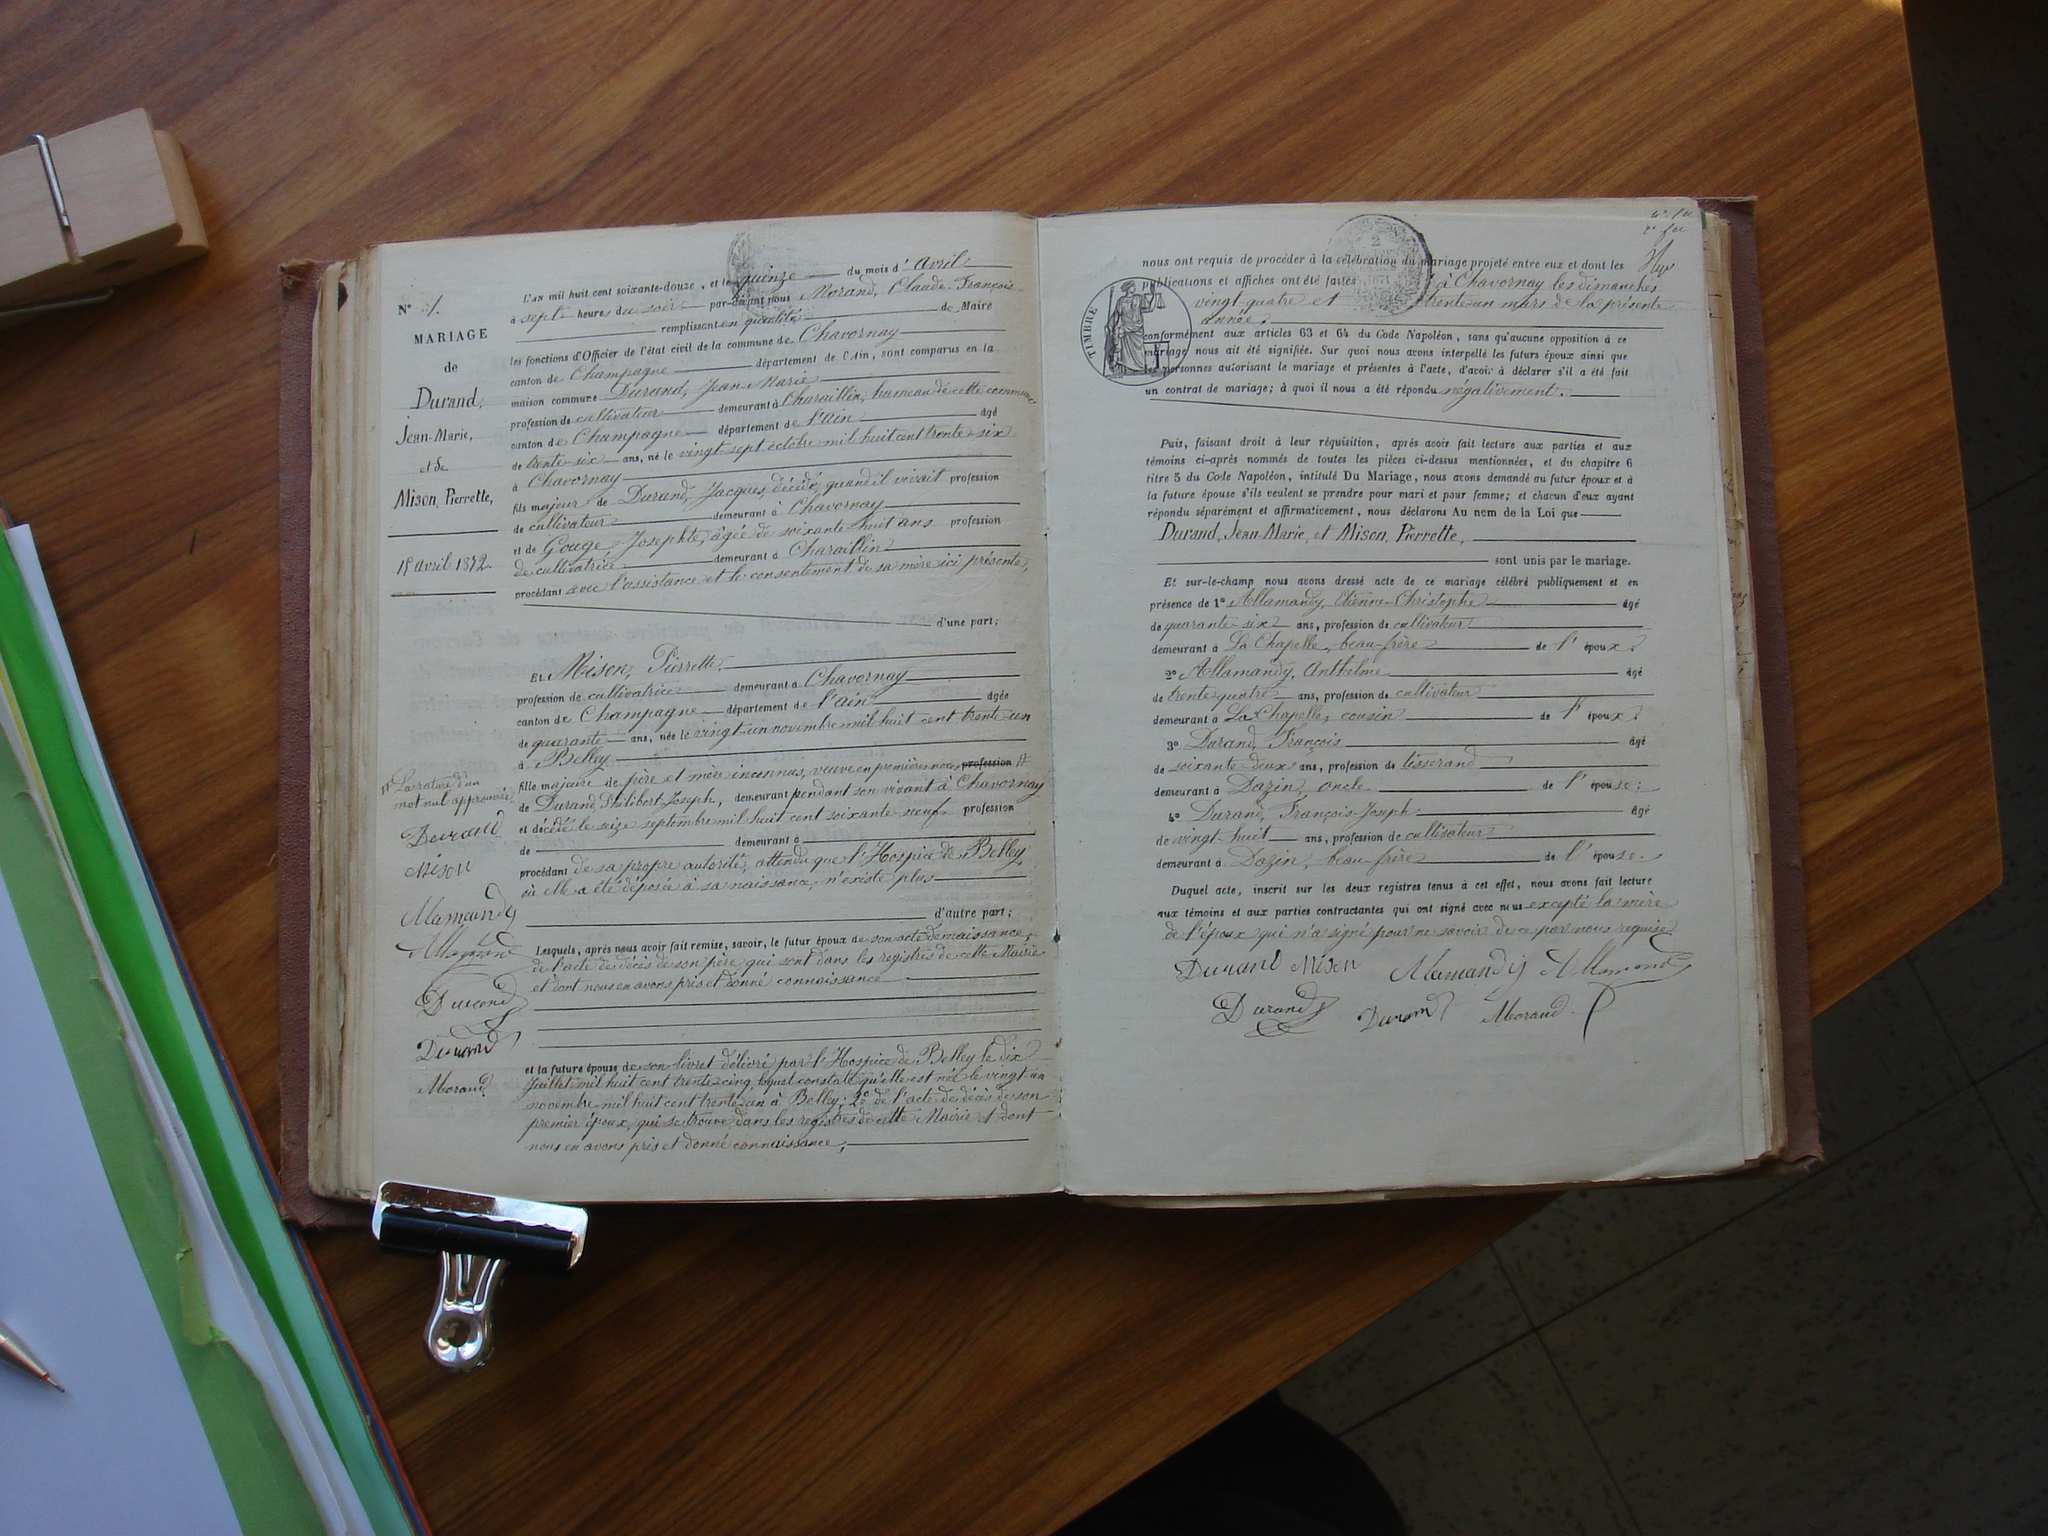 N° 1.
MARIAGE
de
Durand,
Jean-Marie,
et de
Mison, Pierrette,
15 avril 1872.
L'AN mil huit cent soixante-douze, et le quinze du mois d'Avril
à sept heures du soir par-devant nous Morand, Claude-François
remplissant en qualité de Maire
les fonctions d'Officier de l'état civil de la commune de Chavornay
canton de Champagne département de l'Ain, sont comparus en la
maison commune Durand, Jean-Marie
profession de cultivateur demeurant à Charaillin, hameau de cette commune
canton de Champagne département de l'ain âgé
de trente-six ans, né le vingt-sept octobre mil huit cent trente-six
à Chavornay
fils majeur de Durand, Jacques, décédé, quand il vivait profession
de cultivateur demeurant à Chavornay
et de Gouge Josephte, âgée de soixante-huit ans profession
de cultivatrice demeurant à Charaillin
procédant avec l'assistance et le consentement de sa mère ici présente,
d'une part;
Et Mison, Pierrette.
profession de cultivatrice demeurant à Chavornay
canton de Champagne département de l'ain âgée
de quarante ans, née le vingt-un novembre mil huit cent trente-un
à Belley
fille majeure de père et mère inconnus, veuve en premières noces profession
de Durand, Philibert-Joseph, demeurant pendant son vivant à Chavornay
et décédé le seize septembre mil huit cent soixante-neuf profession
de demeurant à
procédant de sa propre autorité, attendu que l'Hospice de Belley
où elle a été déposée à sa naissance, n'existe plus
d'autre part;
Lesquels, après nous avoir fait remise, savoir, le futur époux de son acte de naissance,
de l'acte de décès de son père qui sont dans les registres de cette Mairie
et dont nous en avons pris et donné connaissance
et la future épouse de son livret délivré par l'Hospice de Belley le dix
Juillet mil huit cent trente-cinq, lequel constate qu'elle est née le vingt-un
novembre mil huit cent trente-un à Belley; 2° de l'acte de décès de son
premier époux, qui se trouve dans les registres de cette Mairie et dont
nous en avons pris et donné connaissance;
La rature d'un
mot nul approuvée.
Durand
Mison
Alamandy
Allamand
Durand
Durand
Morand
nous ont requis de procéder à la célébration du mariage projeté entre eux et dont les
publications et affiches ont été faites à Chavornay les dimanches
vingt-quatre et trente-un mars de la présente
année.
TIMBRE
2
conformément aux articles 63 et 64 du Code Napoléon, sans qu'aucune opposition à ce
mariage nous ait été signifiée. Sur quoi nous avons interpellé les futurs époux ainsi que
les personnes autorisant le mariage et présentes à l'acte, d'avoir à déclarer s'il a été fait
un contrat de mariage; à quoi il nous a été répondu négativement.
Puis, faisant droit à leur réquisition, après avoir fait lecture aux parties et aux
témoins ci-après nommés de toutes les pièces ci-dessus mentionnées, et du chapitre 6
titre 5 du Code Napoléon, intitulé Du Mariage, nous avons demandé au futur époux et à
la future épouse s'ils veulent se prendre pour mari et pour femme; et chacun d'eux ayant
répondu séparément et affirmativement, nous déclarons Au nom de la Loi que
Durand, Jean-Marie, et Mison, Pierrette,
sont unis par le mariage.
Et sur-le-champ nous avons dressé acte de ce mariage célébré publiquement et en
présence de 1° Allamandy, Etienne-Christophe âgé
de quarante-six ans, profession de cultivateur
demeurant à La Chapelle, beau-frère de l'époux.
2° Allamandy, Anthelme âgé
de trente-quatre ans, profession de cultivateur
demeurant à La Chapelle, cousin de l'époux.
3° Durand, François âgé
de soixante-deux ans, profession de tisserand
demeurant à Dazin, oncle de l'épouse;
4° Durand, François-Joseph âgé
de vingt-huit ans, profession de cultivateur
demeurant à Dazin, beau-frère de l'épouse.
Duquel acte, inscrit sur les deux registres tenus à cet effet, nous avons fait lecture
aux témoins et aux parties contractantes qui ont signé avec nous excepté la mère
de l'époux qui n'a signé pour ne savoir de ce par nous requise
Durand Mison Alamandy Allamand
Durand Durand Morand